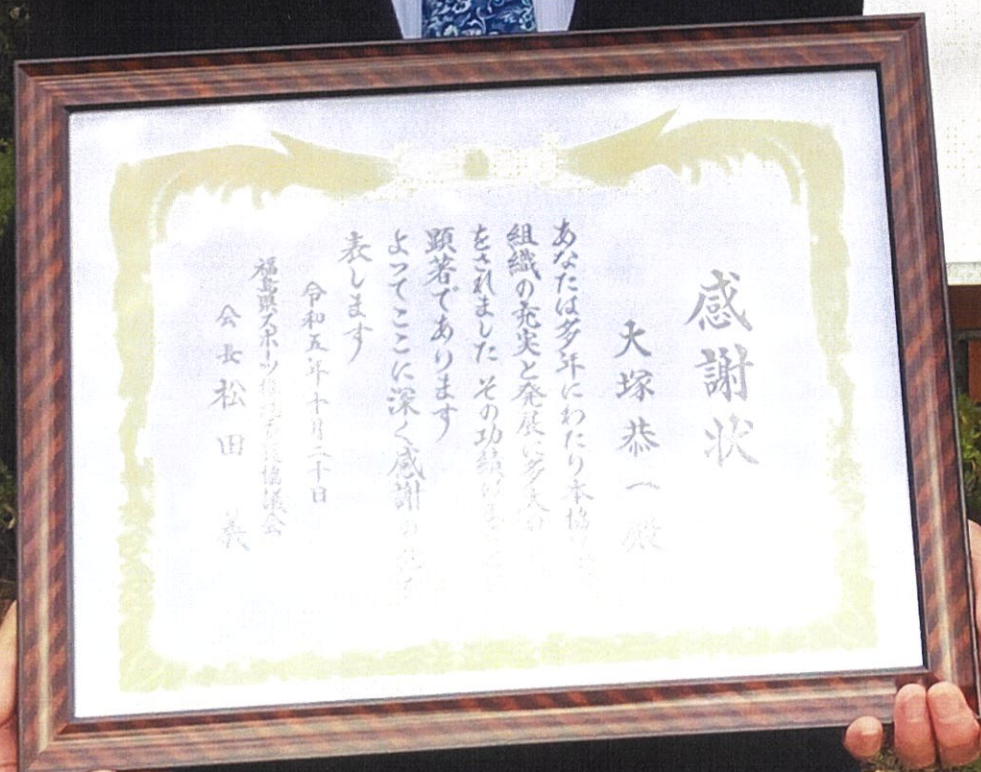 感謝状
大塚恭一殿
あなたは多年にわたり本協
組織の充実と発展に多大の
をされました その功績は
顕著であります
よってここに深く感謝の
表します
令和五年十月二十日
福島県スポーツ 協議会
会長 松田 義